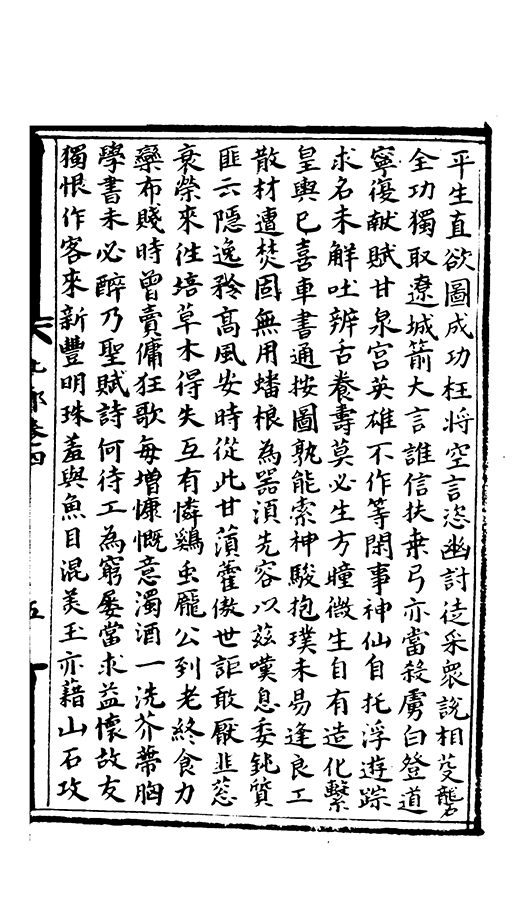 平生直欲圖成功枉将空言恣幽討徒采衆說相芟礱
全功獨取遼城箭大言誰信扶桒弓亦當殺虜白登道
寧復献賦甘泉宫英雄不作等閑事神仙自托浮遊踪
求名未解吐辨舌養壽莫必生方瞳微生自有造化繫
皇輿巳喜車書通按圖孰能索神駿抱璞未易逢良工
散材遭焚固無用蟠根為器湏先容以兹嘆息委鈍質
匪云隱逸矜髙風安時從此甘蒷藿傲世詎敢厭韭葱
衰榮來徃培草木得失互有憐鷄虫龐公到老終食力
欒布賤時曾賣傭狂歌每增慷慨意濁酒一洗芥蔕胸
學書未必醉乃聖賦詩何待工為窮屡當求益懷故友
獨恨作客來新豐明珠羞與魚目混美玉亦藉山石攻
五